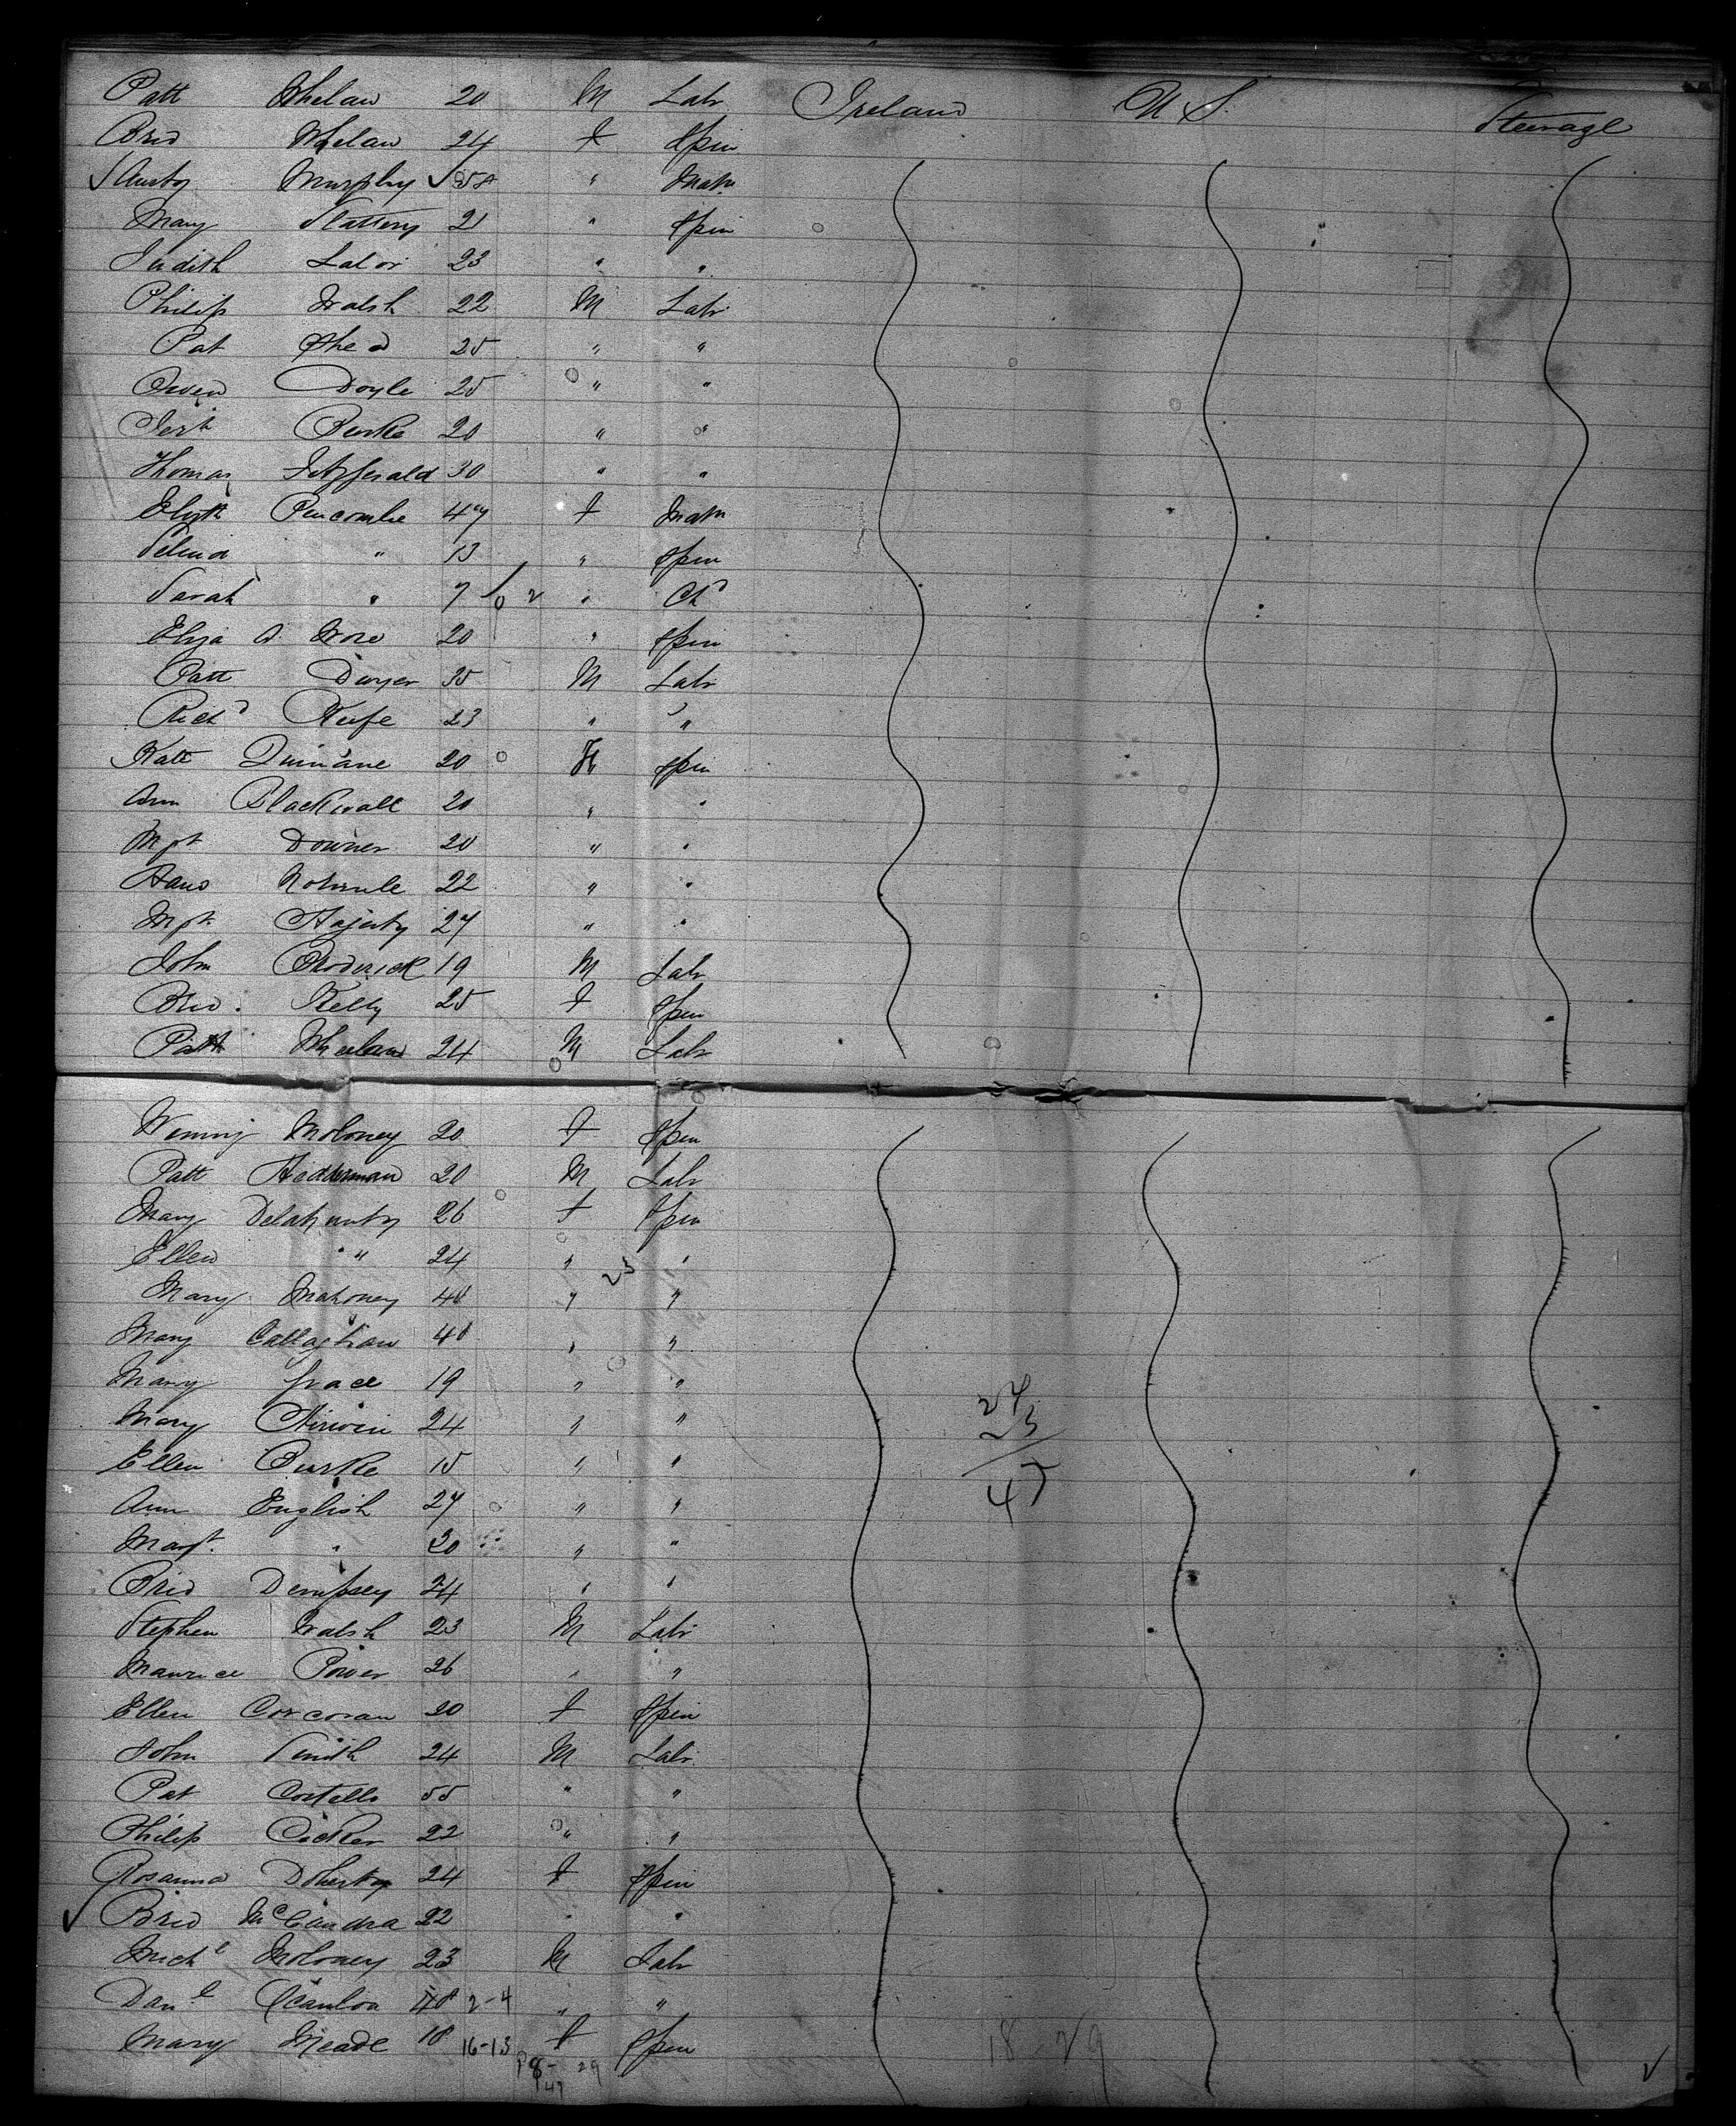 Patt Whelan 20 M Labr Ireland U S. Steerage
Brid Whelan 24 f Spin
Murphy " Matn
Mary Slattery 21 " Spin
Judith Lalor 23 " "
Philip Walsh 22 M Labr
Pat Shea 25 " "
Owen Doyle 25 " "
Burke 20 " "
Thomas Fitzgerald 30 " "
Elizth Pincombe 47 f Matn
Selina " 13 " Spin
Sarah " 7 " Chd
Eliza A. 20 " Spin
Patt Dwyer 35 M Labr
Richd Keefe 23 " "
Kate Quinane 20 F Spin
Ann Blackwall 20 " "
Mgt Downes 20 " "
22 " "
Mgt Hajerty 27 " "
John Broderick 19 M Labr
Brid. Kelly 25 f Spin
Patt Whelan 24 M Labr
Moloney 20 f Spin
Patt Hedderman 20 M Labr
Mary Delahunty 26 f Spin
Ellen " 24 " 23 "
Mary Mahoney 40 " "
Mary Callaghan 40 " "
Mary Grace 19 " "
Mary 24 " "
Ellen Burke 15 " "
Ann English 27 " "
Margt. " 20 " "
Brid Dempsey 24 " "
Stephen Walsh 23 M Labr
Maurice Power 26 " "
Ellen Corcoran 20 f Spin
John Smith 24 M Labr
Pat Costello 55 " "
Philip 22 " "
Rosanna Doherty 24 f Spin
Brid 22 " "
Michl Moloney 23 M Labr
Danl Scanlon 40 2-4 " "
Mary Meade 18 16-13 f Spin
24
23
47
18 29